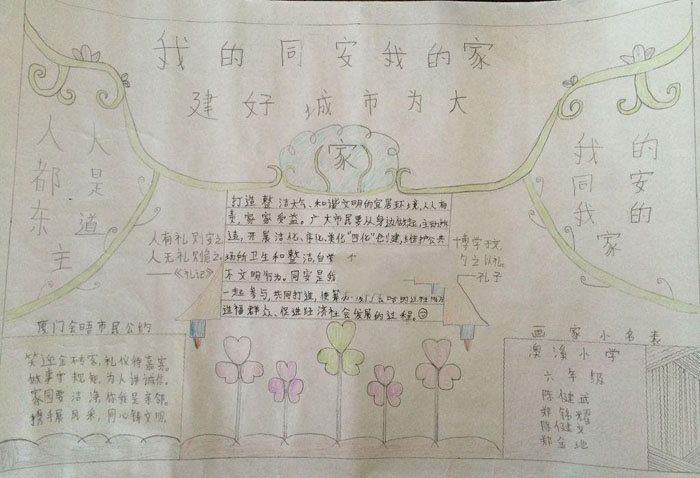 我的同安我的家
建好城市为大
家
人人都是东道主
我的同安我的家
打造整洁大气、和谐文明的宜居环境,人人有
责,家家受益。广大市民要从身边做起,主动
造,开展洁化、序化、美化"四化"创建,维护公共
场所卫生和整洁,自觉
不文明行为。同安是我
一起参与,共同打造,使
造福群众、促进经济社会发展的过程。
人有礼则安之
人无礼
——《礼记》
博学于文
约之以礼
——孔子
厦门会晤市民公约
笑迎全不客,礼仪待嘉宾。
做事守规矩,为人讲诚信。
家园要洁净,你我是亲邻。
携手展风采,同心铸文明。
画家小名表
澳溪小学
六年级
陈健斌
郑锦耀
陈健义
郑金池